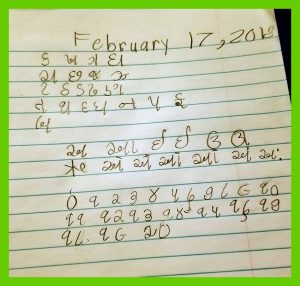 February 17,
ક ખ ગ ઘ
ચ છ જ ઝ
ટ ઠ ડ ઢ ણ
ત થ દ ધ ન પ ફ
બ
અ આ ઇ ઈ ઉ ઊ
એ ઐ ઓ ઔ અં
૦ ૧ ૨ ૩ ૪ ૫ ૬ ૭ ૮ ૯ ૧૦
૧૧ ૧૨ ૧૩ ૧૪ ૧૫ ૧૬ ૧૭
૧૮ ૧૯ ૨૦